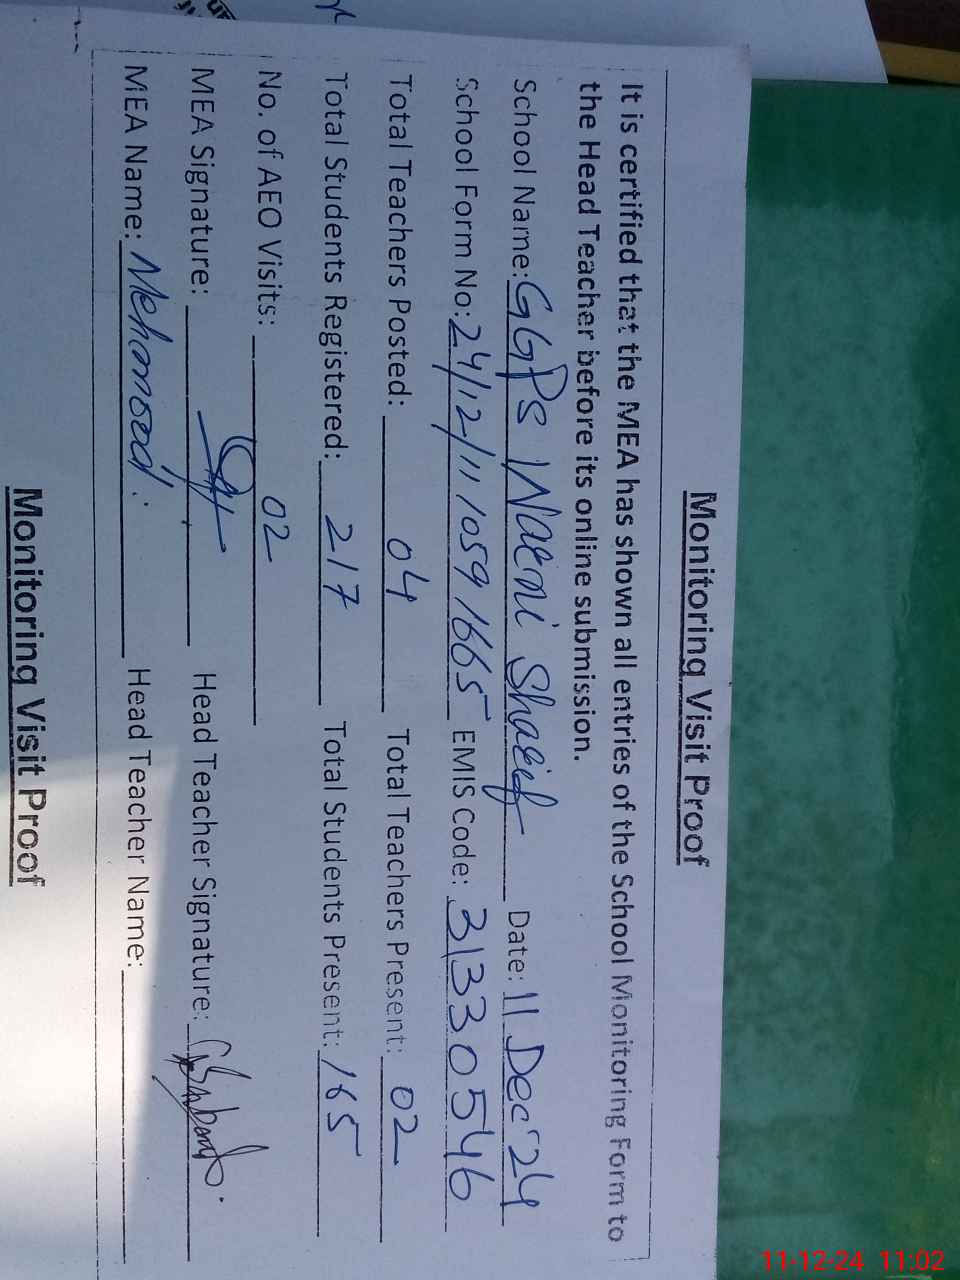 Monitoring Visit Proof
It is certified that the MEA has shown all entries of the School Monitoring Form to
the Head Teacher before its online submission.
School Name: GGPS Waeni Shareef Date: 11 Dec'24
School Form No: 24/12/11/1059/1665 EMIS Code: 31330546
Total Teachers Posted: 04 Total Teachers Present: 02
Total Students Registered: 217 Total Students Present: 165
No. of AEO Visits: 02
MEA Signature: Head Teacher Signature:
MEA Name: Mehmood. Head Teacher Name:
Monitoring Visit Proof
11-12-24 11:02